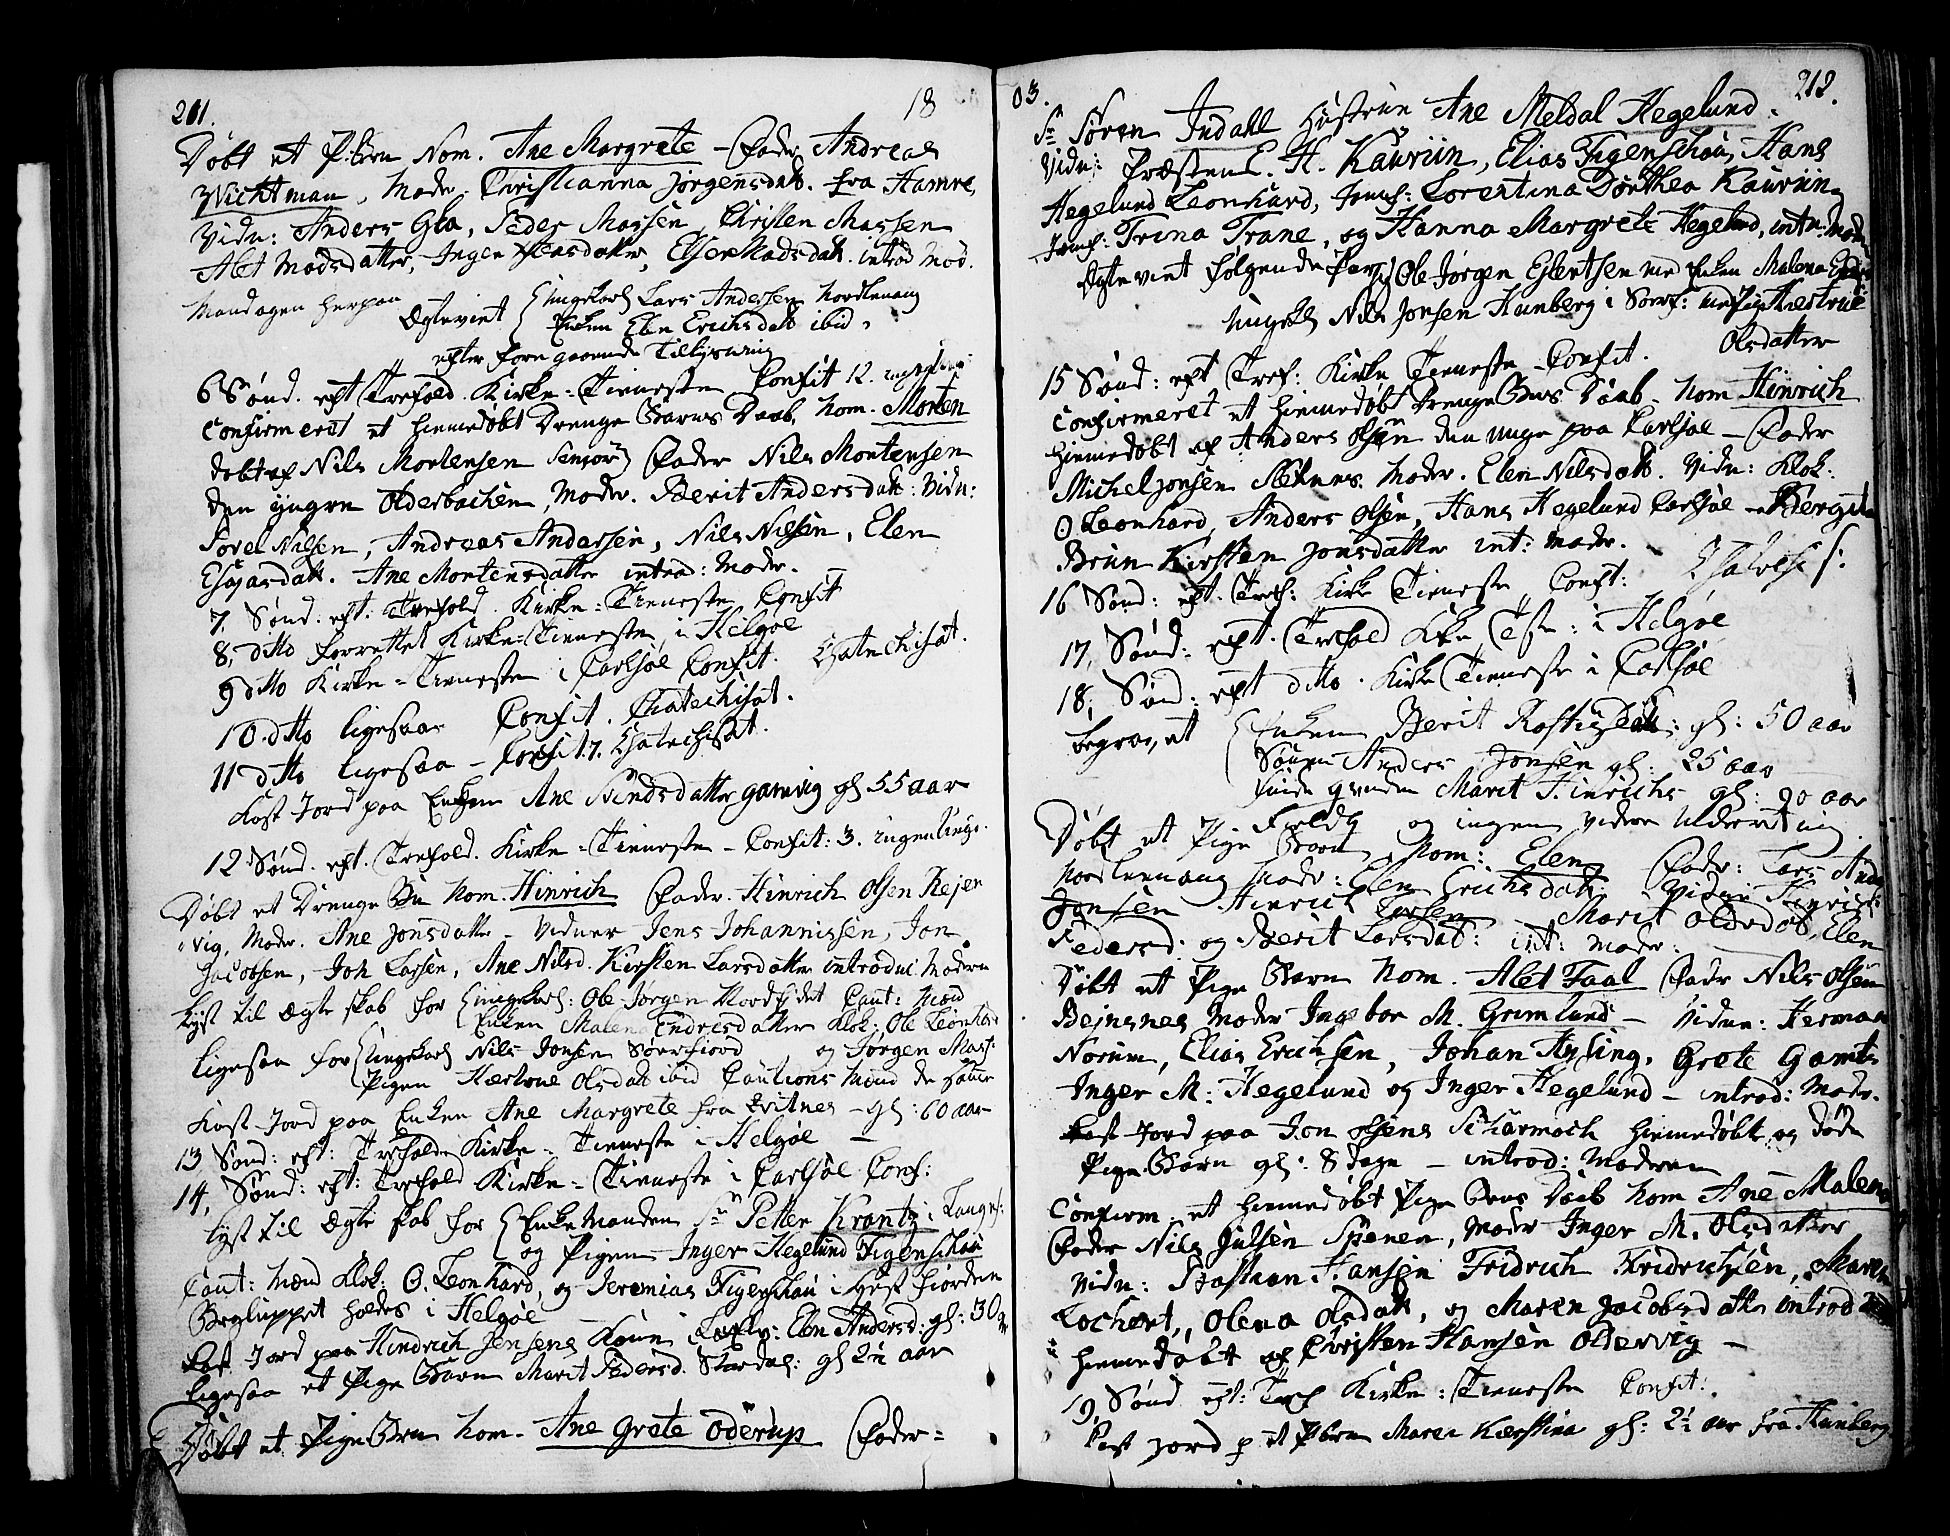 201. 18
Døbt et P:børn Nom. Ane Margrete - Fader Andreas
Wichtman, Moder. Christianna Jørgensdatt. fra Hamre,
Vidn: Anders Gla, Peder Massen, Christen Massen
Alet Madsdatter, Inger datter, Elsen Madsdatt. introd Mod.
Mandagen herpaa Ægteviet ungekarl Lars Andersen Nordlenang
Enken Elen Erichsdatt ibid.
efter foregaaende Tillysning
6 Sønd. eft Trefold. Kirke-Tieneste Confit 12.
Confirmerit et hiemedøbt Drenge Barns Daab, Nom. Morten
døbt af Nils Mortensen Senior Fader Nils Mortensen
den yngre Olderbachen, Moder. Berit Andersdatt: Vidn:
Povel Nilsen, Andreas Andersen, Nils Nilsen, Elen
Esajasdatt. Ane Mortensdatter introd: Moder.
7. Sønd. eft: Trefold. Kirke-Tieneste Confit
8, ditto forrettet Kirke-Tieneste i Helgøe
9 ditto Kirke-Tieneste i Carlsøe Confit. Chatechisat.
10 ditto ligesaa Confit. Chatechisat.
11 ditto ligesaa - Confit 7. Chatechisat.
Kast Jord paa Enken Ane datter gamvig gl 55 aar
12 Sønd. eft. Trefold. Kirke-Tieneste - Confit: 3. ingen
Døbt et Drenge Bn Nom. Hinrich Fader. Hinrich Olsen Rejen
vig, Moder. Ane Jonsdatter - Vidner Jens Johannissen, Jon
Jacobsen, Joh Larsen, Ane Nilsd. Kirsten Larsdatter introdu: Moderen
Lyst til Ægteskab for ungekarl: Ole Jørgen Nordfjdet Caut: Mænd
Enken Malena Endresdatter Klok: Ole Leonhard
ligesaa for ungekarl Nils Jonsen Sørrfiord og Jørgen Mass:
Pigen Kiestrue Olsdatt ibid Cautions Mænd de samme
Kast Jord paa Enken Ane Margrete fra Hvitnes - gl: 60 aar
13 Sønd: eft: Trefolde Kirke-Tieneste i Helgøe
14, Sønd: eft: Trefold Kirke-Tieneste i Carlsøe Conf:
Lyst til Ægteskab for Enkemanden Sr Petter Krantz i Langs:
og Pigen Inger Hegelund Figenschau
Caut: Mænd Klok: O. Leonhard, og Jeremias Figenschau i Fiorden
Brylluppet holdes i Helgøe
Kast Jord paa Hindrich Jensens Kone Elen Andersd: gl: 30 aar
ligesaa et Pige Barn Marit Pedersd. Skardal: gl 2½ aar
Døbt et Pige Brn Nom. Ane Grete Oderup Fader =
03. 212.
Sr Søren Indahl Hustrue Ane Meldal Hegelund.
Vidn: Præsten E. H. Kaurin, Elias Figenschou, Hans
Hegelund Leonhard, Jomf: Lorentina Dorthea Kaurin
Jomf: Trina Trane, og Hanna Margrete Hegelund, intr: Moder
Ægteviet følgende Par Ole Jørgen Ejlertsen med Enken Malena Endresd
ungkl Nils Jonsen Hunberg i Sørf: med Pigen Kiestrue
Olsdatter
15 Sønd: eft Tref: Kirke Tieneste - Confit.
Confirmeret et hiemedøbt Drenge Brns Daab - Nom Hinrich
hiemedøbt af Anders Olsen den unge paa Carlsøe - Fader
Michel Jonsen, Moder. Elen Nilsdatt. Vidn: Klok:
O Leonhard, Anders Olsen, Hans Hegelund Carlsøe - Bergit
Brun Kirsten Jonsdatter int: Moder.
16 Sønd: eft. Tref: Kirke Tieneste Confit: Chatechis:
17, Sønd: eft. Trefold Kke Tste: i Helgøe
18, Sønd: eft ditto. Kirke Tieneste i Carlsøe
begravet Enken Berit gl: 50 aar
Sønnen Anders Jonsen gl: 25 aar
Marit Hinrichs gl: 90 aar
og ingen videre Udretning
Døbt et Pige Barn, Nom: Elen Fader: Lars Ander
Nordlenang Moder: Elen Erichsdatt: Vidn: Hinrich
Jonsen Hinrich Larsen Marit Olsdat, Elen
Pedersd: og Berit Larsdat: int: Moder.
Døbt et Pige Barn Nom. Alet Faal Fader Nils Olsen
Bejnesnes Moder Ingebor M. Grimlund - Vidn: Herman
Norum, Elias Erichsen, Johan Hysing, Grete Gamst
Inger M: Hegelund og Inger Hegelund - introd: Moder.
Kast Jord paa Jon Olsens Skarmoch hiemedøbt og døde
Pige Barn gl: 8 Dage - introd: Moderen
Confirm. et hiemedøbt Pige Brns Daab Nom Ane Malena
Fader Nils Julsen Spenen, Moder Inger M. Olsdatter
Vidn: Bastian Hansen Fridrich Fridrichsen, Maren
Lochert, Olena Olsdatt, og Maren Jacobsdatter introd
hiemedøbt af Christen Hansen Oldervig -
19, Sønd eft: Tref Kirke: Tieneste Confit:
Kast Jord p et Pbrn Maren Kierstina gl: 2½ aar fra Hunberg